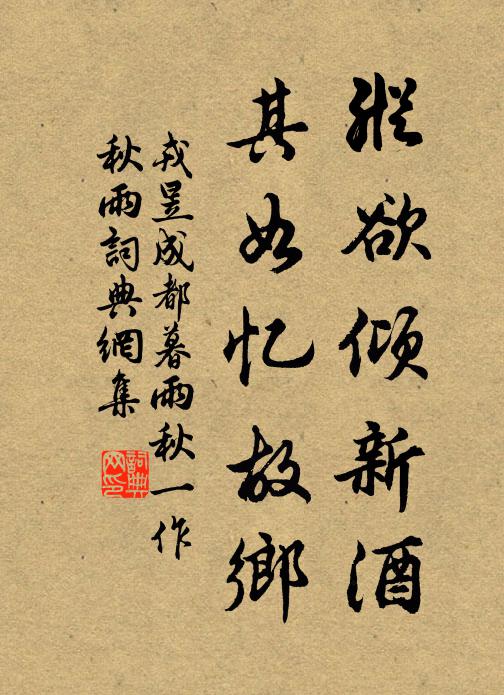 縱欲傾新酒
其如忆故鄉
戎昱成都暮雨秋一作
秋雨詞典網集
詞典网印